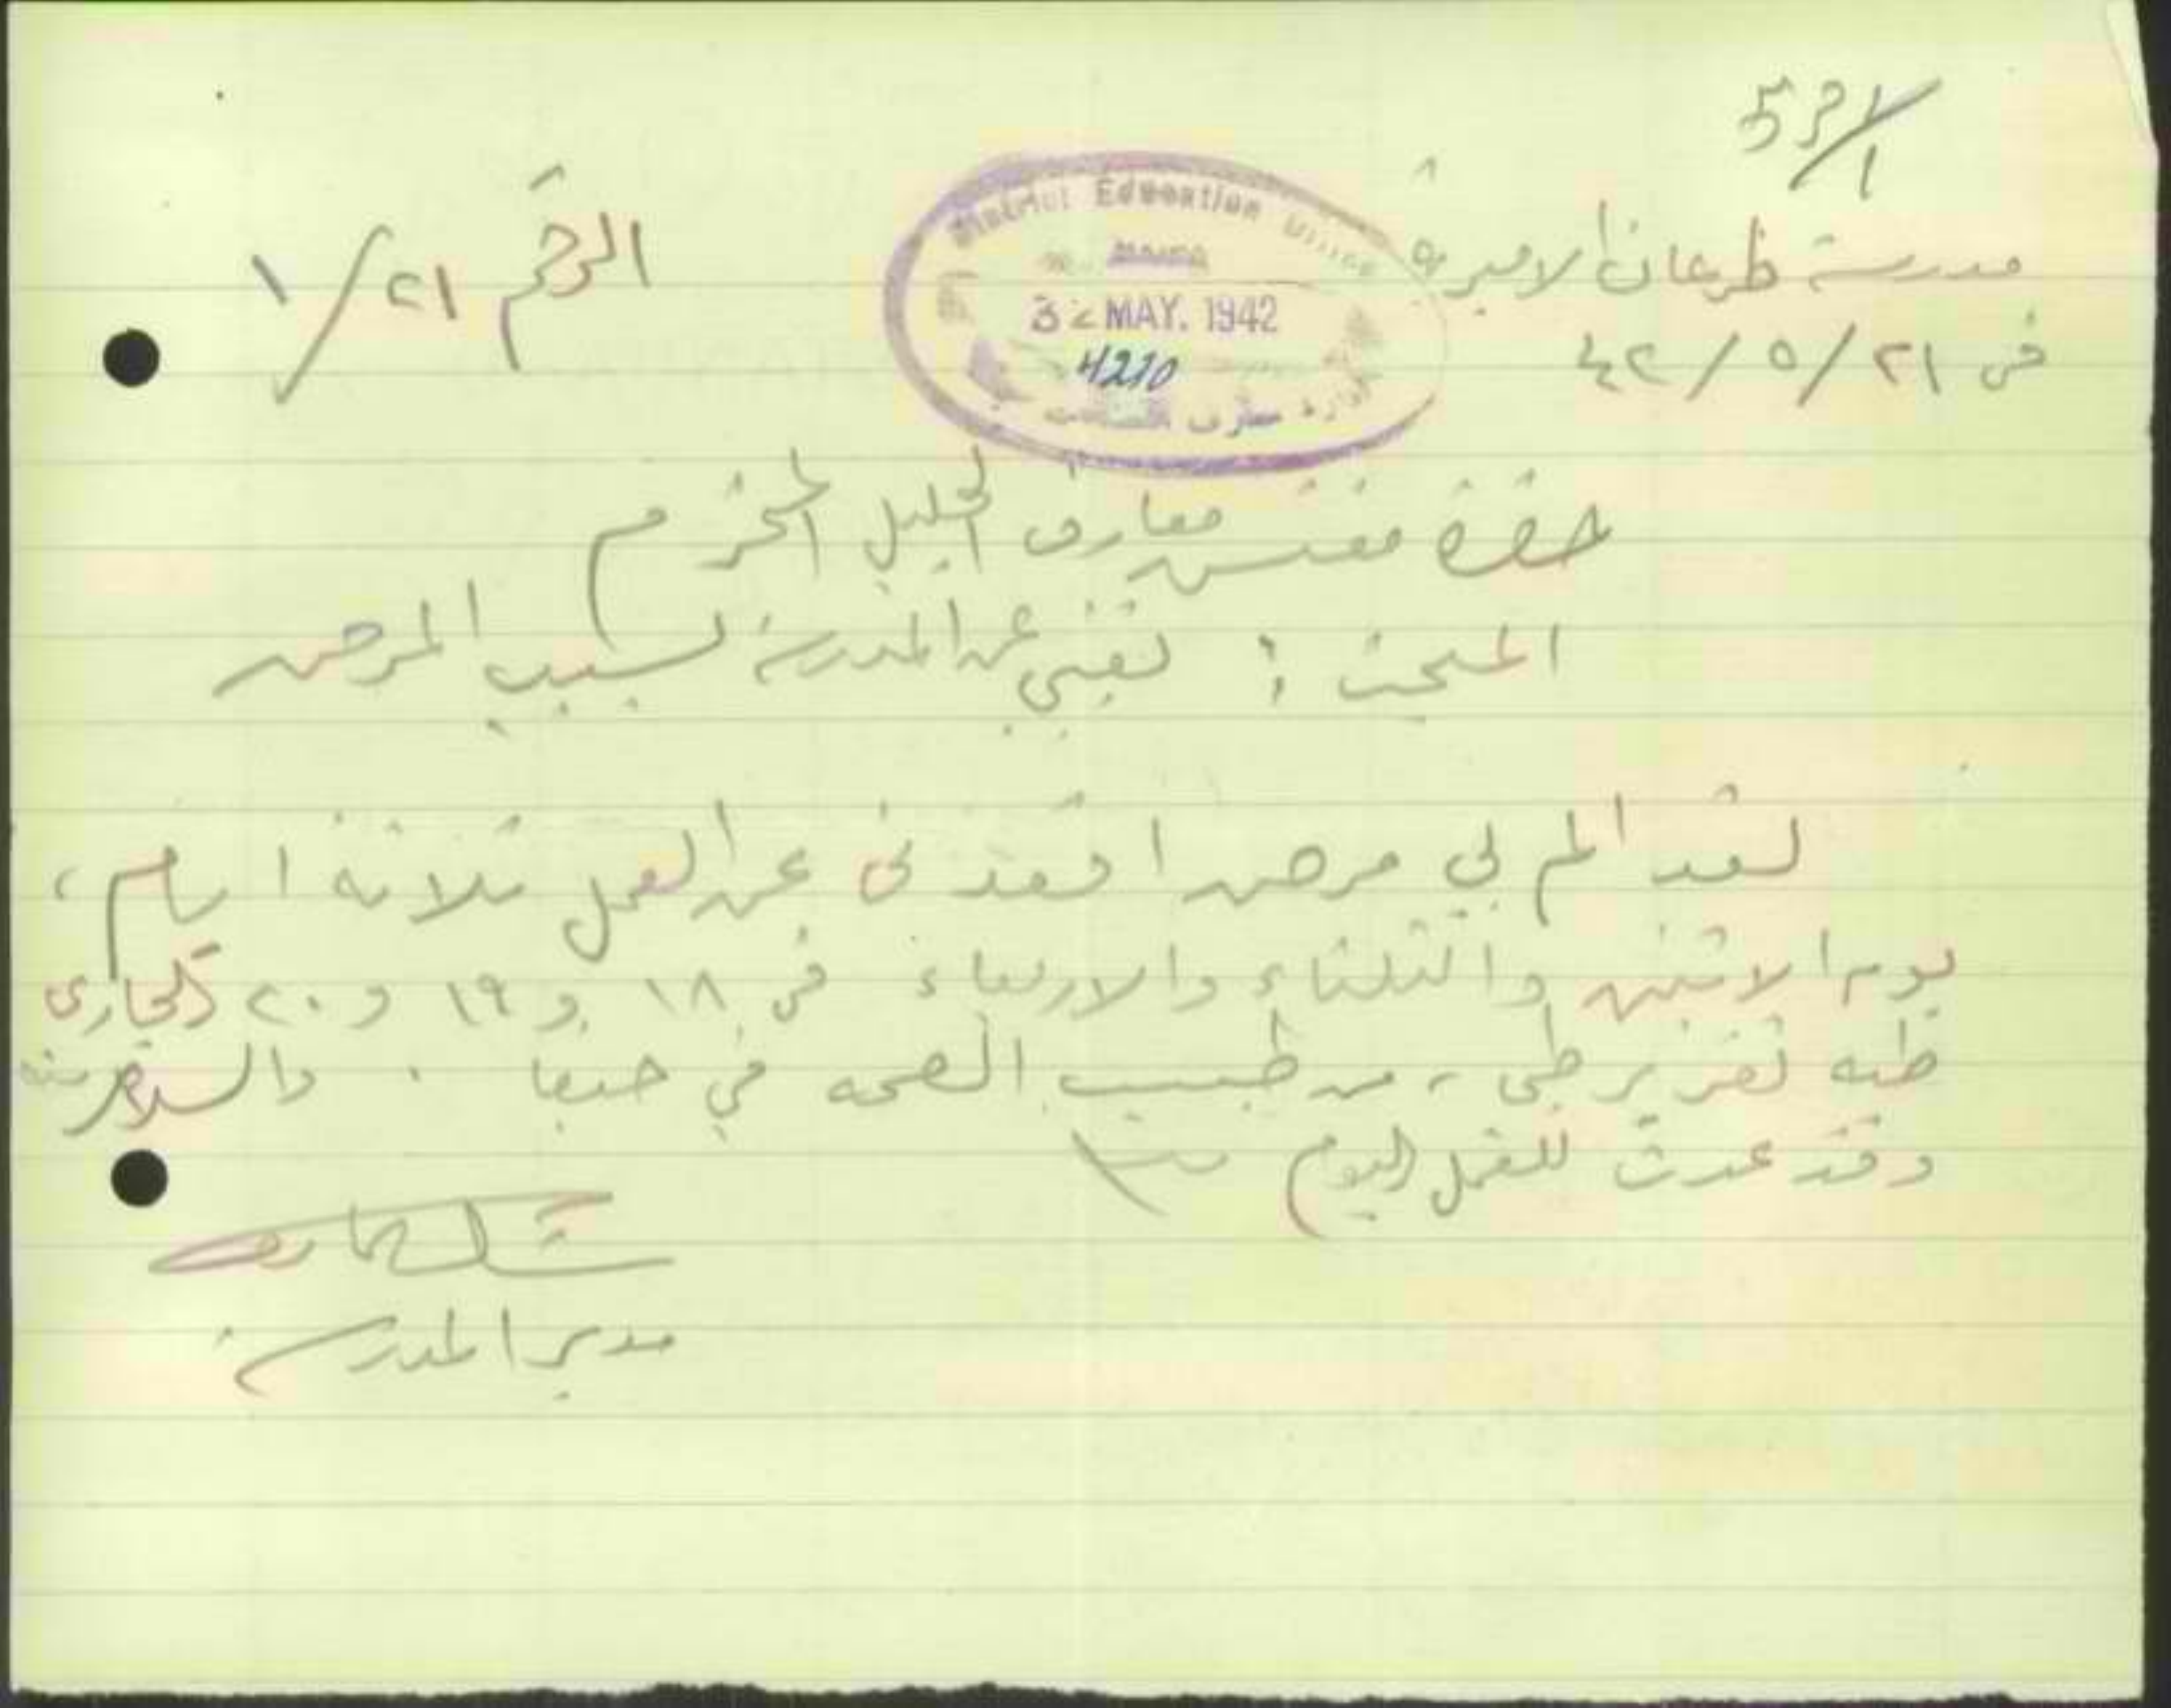 53/1
مدرسة طرعان الاميرية
الرقم ٢١/١
District Education Office
في ٢١/٥/٤٢
MAY. 1942
4210
ادارة معارف
حضرة مفتش معارف الجليل المحترم
المبحث : تغيبي عن المدرسة بسبب المرض
لقد الم بي مرض اقعدني عن العمل ثلاثة ايام ،
يوم الاثنين والثلثاء والاربعاء في ١٨ و ١٩ و ٢٠ الجاري
طيه تقرير طبي ، من طبيب الصحه في حيفا .
وقد عدت للعمل اليوم
مدير المدرسة